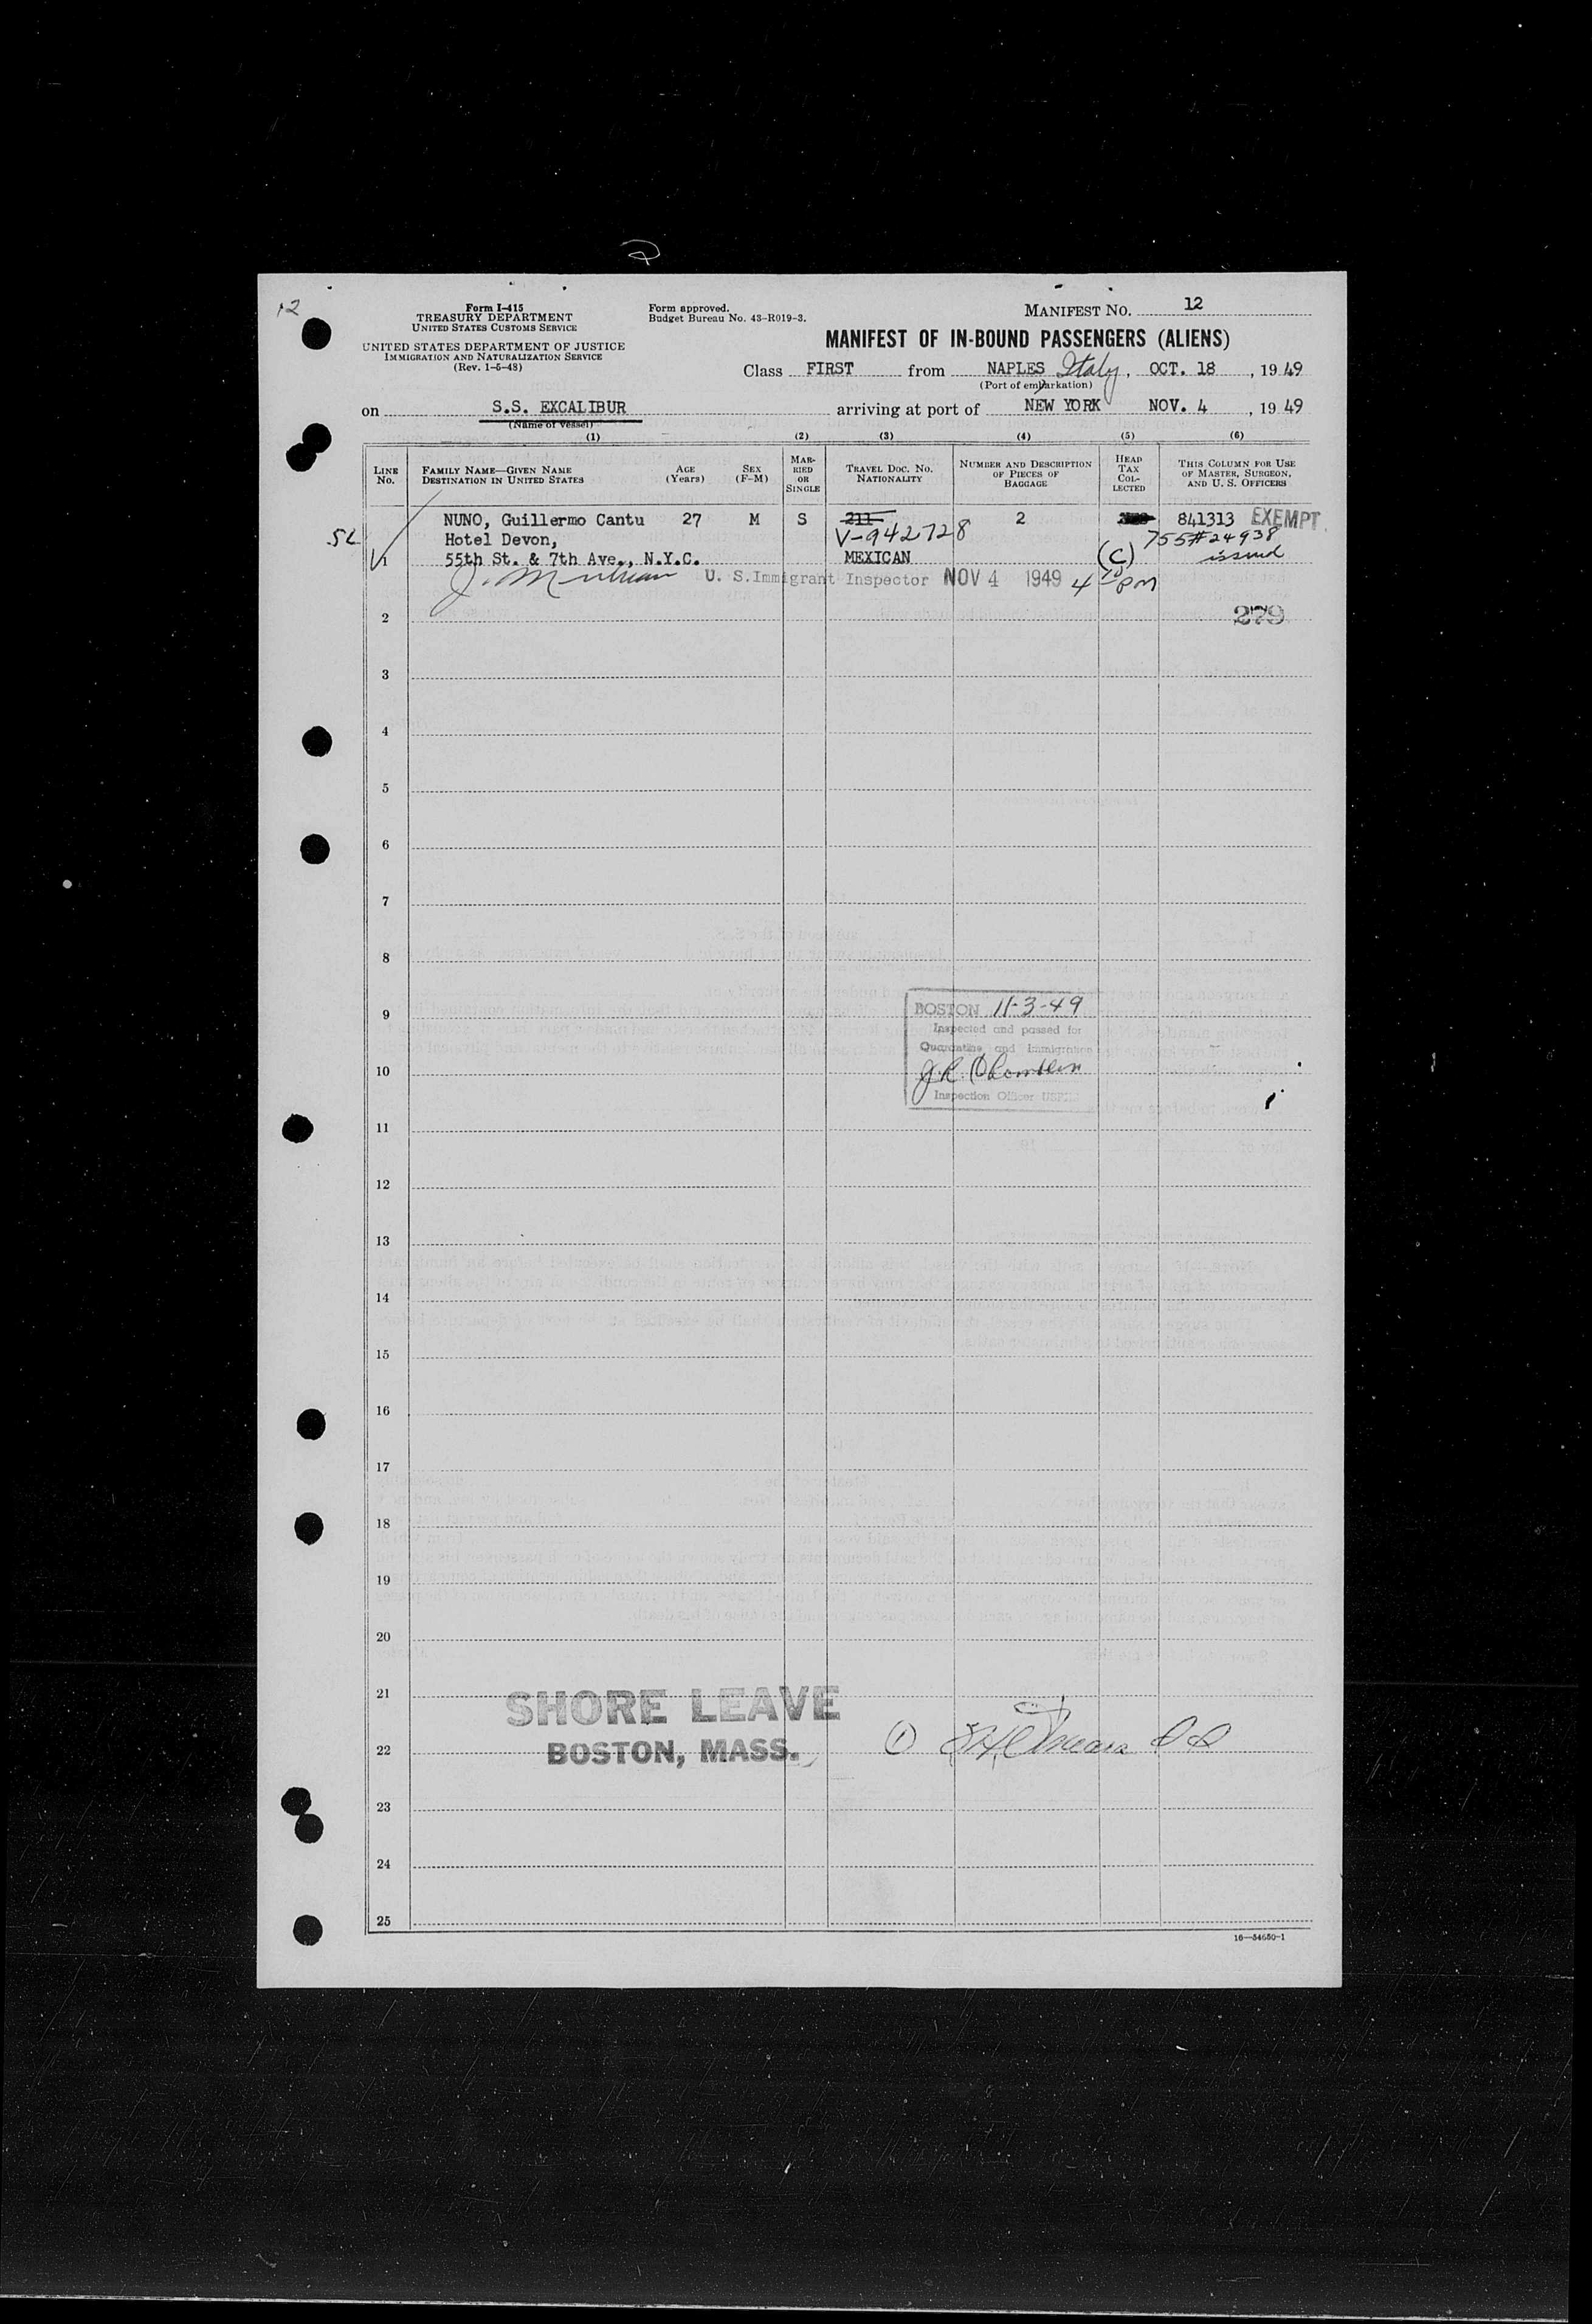 12
Form I-415
TREASURY DEPARTMENT
UNITED STATES CUSTOMS SERVICE
UNITED STATES DEPARTMENT OF JUSTICE
IMMIGRATION AND NATURALIZATION SERVICE
(Rev. 1-5-48)
Form approved.
Budget Bureau No. 43-R019-3.
MANIFEST NO. 12
MANIFEST OF IN-BOUND PASSENGERS (ALIENS)
Class FIRST from NAPLES Italy, OCT. 18, 1949
(Port of embarkation)
on S.S. EXCALIBUR arriving at port of NEW YORK NOV. 4, 1949
(Name of vessel)
(1) (2) (3) (4) (5) (6)
LINE No.
FAMILY NAME—GIVEN NAME
DESTINATION IN UNITED STATES
AGE (Years)
SEX (F-M)
MARRIED OR SINGLE
TRAVEL DOC. NO. NATIONALITY
NUMBER AND DESCRIPTION OF PIECES OF BAGGAGE
HEAD TAX COLLECTED
THIS COLUMN FOR USE OF MASTER, SURGEON, AND U. S. OFFICERS
NUNO, Guillermo Cantu 27 M S 211 2 841313 EXEMPT
52 Hotel Devon, V-942728 755#24938
1 55th St. & 7th Ave., N.Y.C. MEXICAN (C) issued
U. S. Immigrant Inspector NOV 4 1949 4 PM
2 279
3
4
5
6
7
8
9 BOSTON 11-3-49
Inspected and passed for
Quarantine and Immigration
10 J.R.
Inspection Officer
11
12
13
14
15
16
17
18
19
20
21 SHORE LEAVE
22 BOSTON, MASS. (1)
23
24
25
16—54650-1